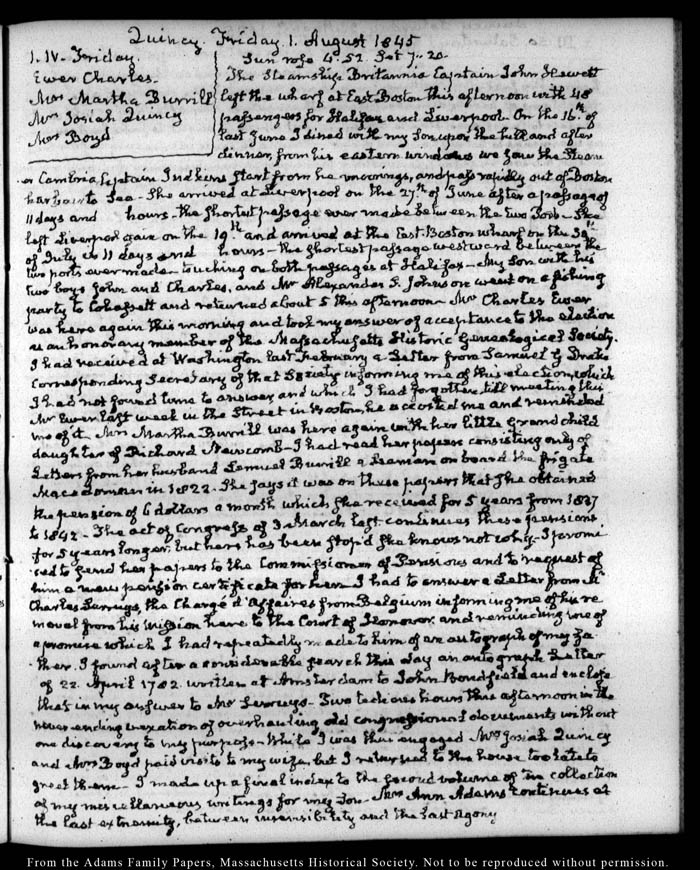 Quincy Friday 1. August 1845
1. IV. Friday.
Ewer Charles.
Mrs Martha Burrill
Mrs Josiah Quincy
Mrs Boyd
Sun rose 4.52. Set 7.20
The Steamship Britannia Captain John Hewett
left the wharf at East Boston this afternoon with 48
passengers for Halifax and Liverpool. On the 16th of
last June I dined with my Son upon the hill and after
dinner, from his eastern windows we saw the Steam
er Cambria Captain Judkins start from her moorings, and pass rapidly out of Boston
harbour to Sea. She arrived at Liverpool on the 27th of June after a passage of
11 days and hours. the shortest passage ever made between the two Ports. She
left Liverpool again on the 19th and arrived at the East Boston wharf on the 30th
of July in 11 days and hours - the shortest passage westward between the
two ports ever made. touching on both passages at Halifax - My Son with his
two boys John and Charles, and Mr Alexander S. Johnson went on a fishing
party to Cohassett and returned about 5 this afternoon - Mr Charles Ewer
was here again this morning and took my answer of acceptance to the election
as an honorary member of the Massachusetts Historic Genealogical Society.
I had received at Washington last February a Letter from Samuel G Drake
Corresponding Secretary of that Society informing me of this election, which
I had not found time to answer, and which I had forgotten, till meeting this
Mr Ewer last week in the Street in Boston, he accosted me and reminded
me of it. Mrs Martha Burrill was here again with her little Grand child
daughter of Richard Newcomb - I had read her papers consisting only of
Letters from her husband Lemuel Burrill a Seaman on board the frigate
Macedonian in 1822. She says it was on these papers that she obtained
the pension of 6 dollars a month which she received for 5 years from 1837
to 1842 - The act of Congress of 3 March last continues these pensions
for 5 years longer, but hers has been stop'd she knows not why - I promi
sed to send her papers to the Commissioner of Pensions and to request of
him a new pension certificate for her. I had to answer a Letter from Mr
Charles Serruys, the Chargé d'Affaires from Belgium informing me of his re
moval from his mission here to the Court of Hanover, and reminding me of
a promise which I had repeatedly made to him of an autograph of my Fa
ther. I found after a considerable search this day an autograph Letter
of 22. April 1782. written at Amsterdam to John Bondfield and enclose
that in my answer to Mr Serruys - Two tedious hours this afternoon in the
never ending vexation of overhauling old congressional documents without
one discovery to my purpose - While I was thus engaged Mrs Josiah Quincy
and Mrs Boyd paid visits to my wife, but I returned to the house too late to
greet them - I made up a final index to the second volume of the collection
of my miscellaneous writings for my Son - Mrs Ann Adams continues at
the last extremity, between insensibility and the last Agony
From the Adams Family Papers, Massachusetts Historical Society. Not to be reproduced without permission.